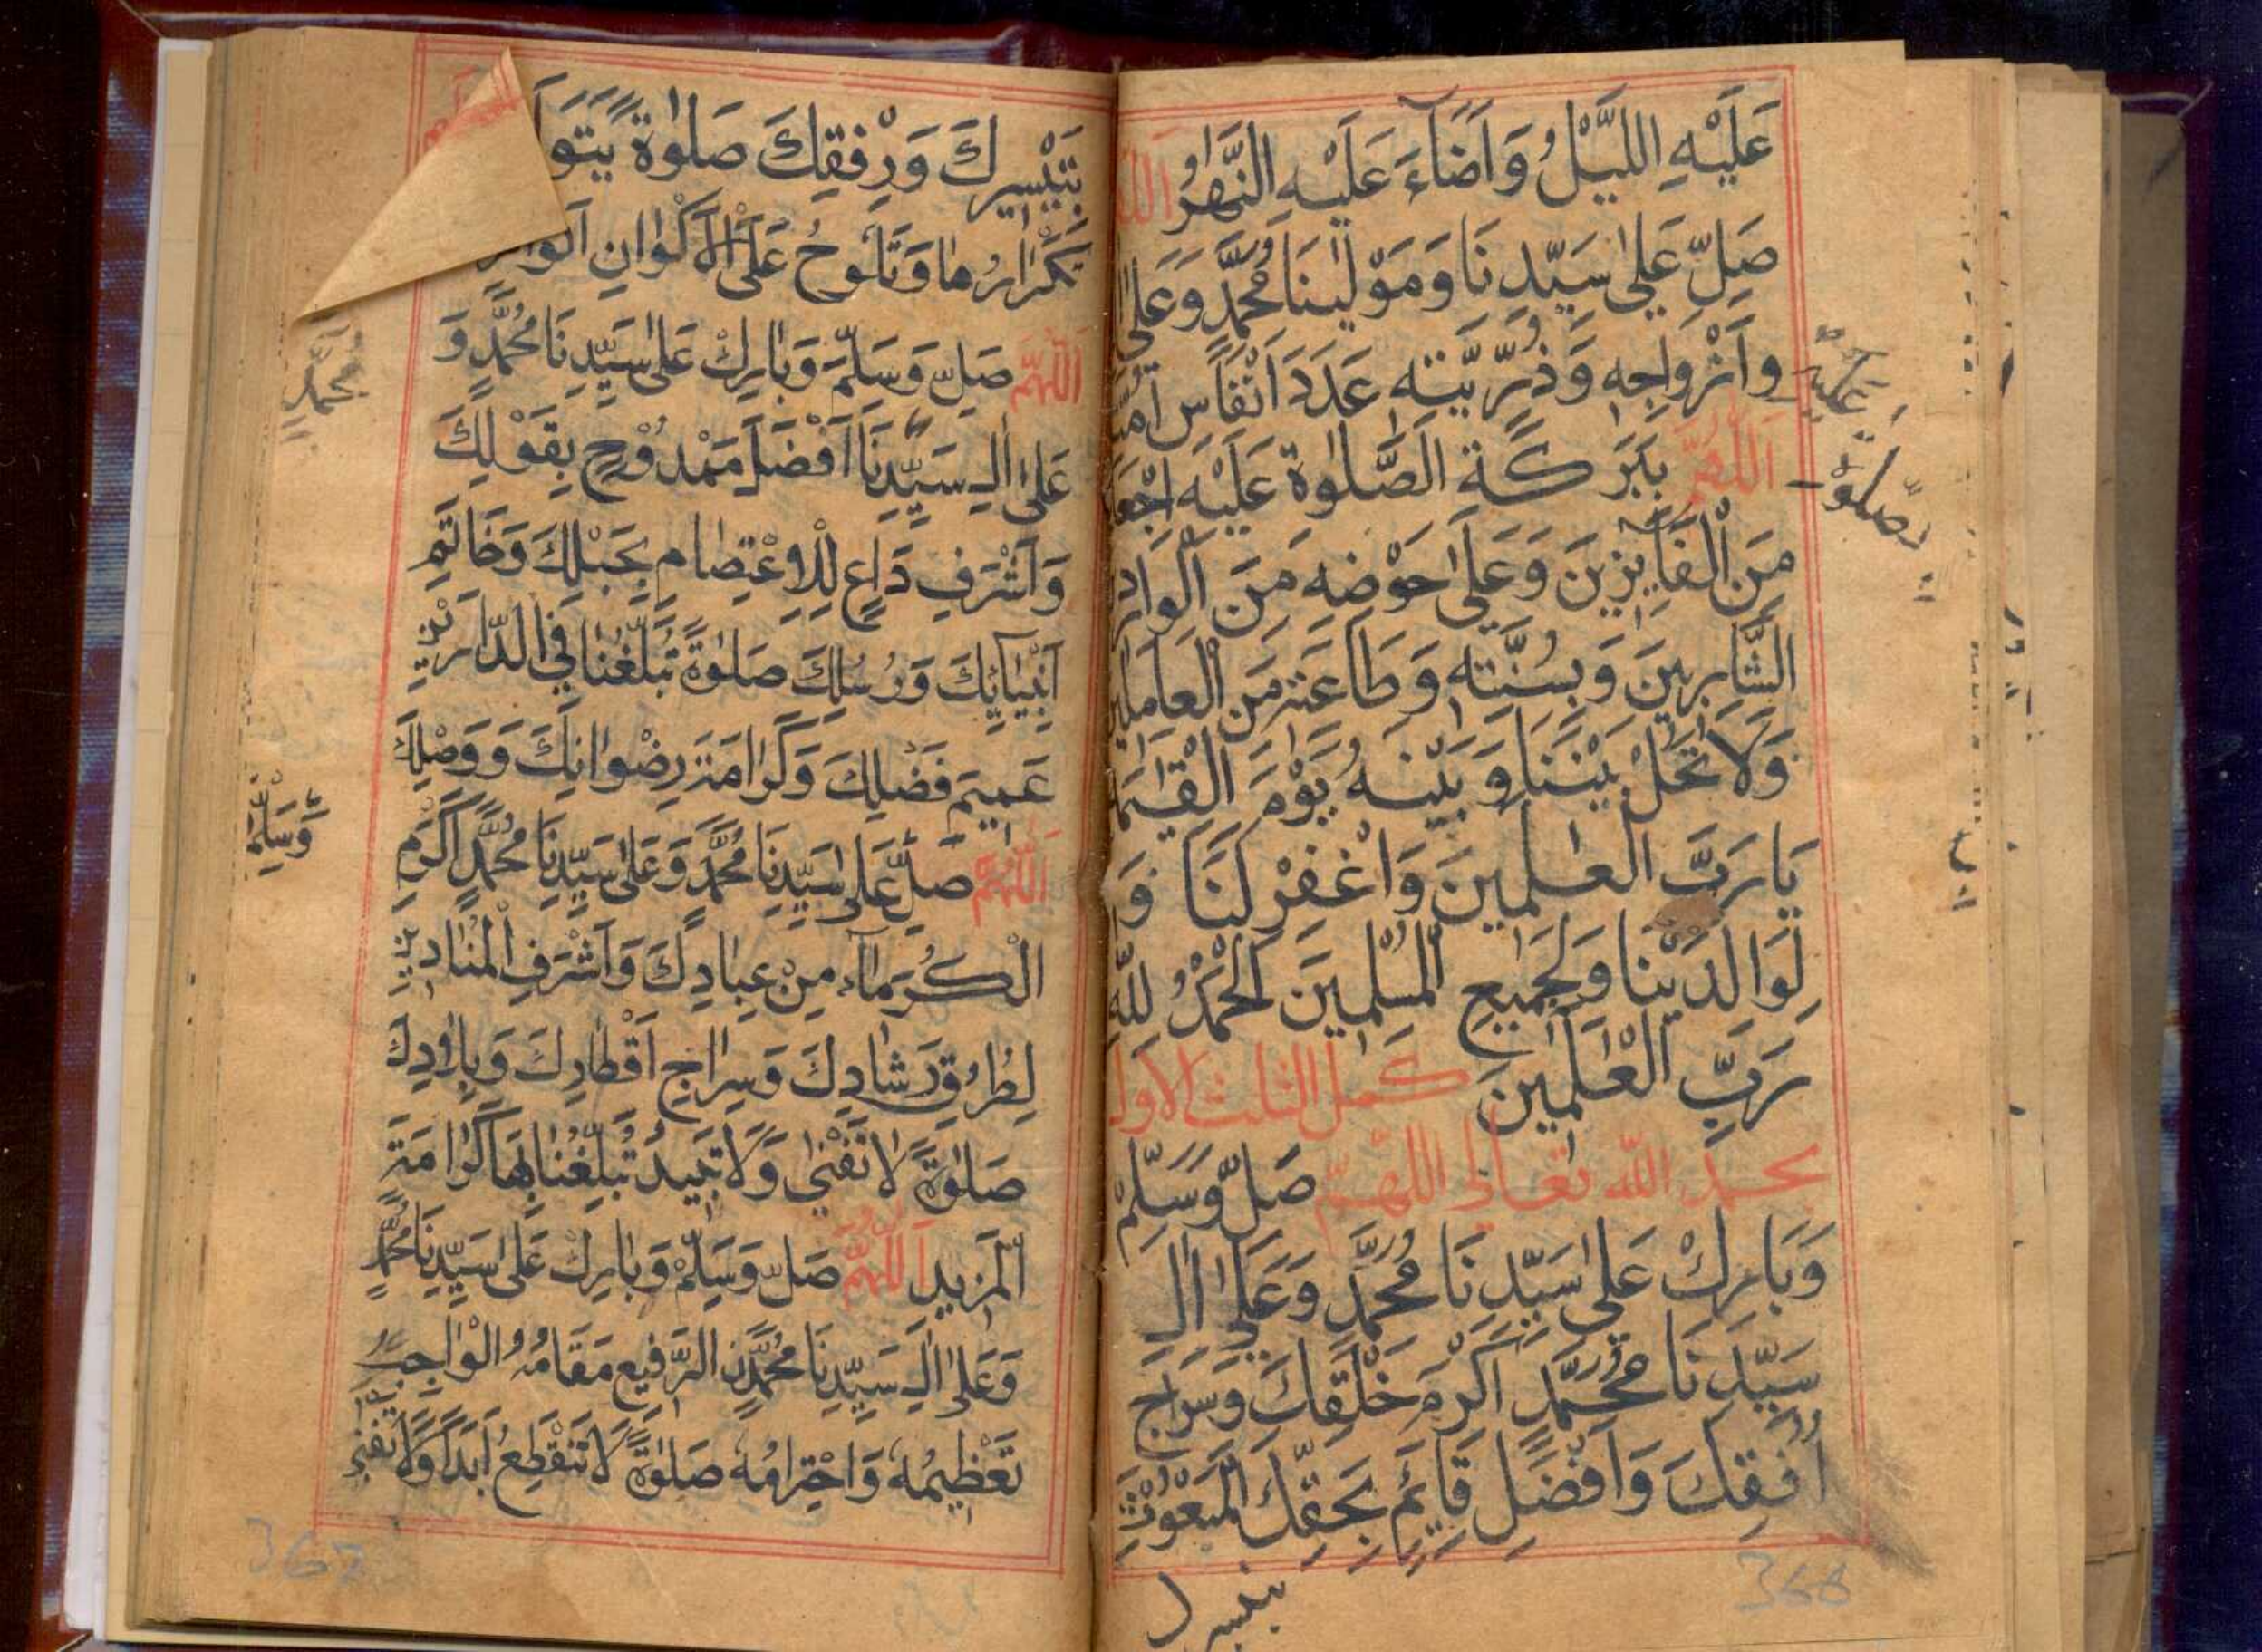 عَلَيْهِ اللَّيْلُ وَاَضَآءَ عَلَيْهِ النَّهَارُ
صَلِّ عَلٰى سَيِّدِنَا وَمَوْلٰينَا مُحَمَّدٍ وَعَلٰى
وَاَزْوَاجِهٖ وَذُرِّيَّتِهٖ عَدَدَ اَنْفَاسِ
اَللّٰهُمَّ بِبَرَكَةِ الصَّلٰوةِ عَلَيْهِ
مِنَ الْفَآئِزِينَ وَعَلٰى حَوْضِهٖ مِنَ
الشَّارِبِينَ وَبِسُنَّتِهٖ وَطَاعَتِهٖ مِنَ الْعَامِلِينَ
وَلَا تَحُلْ بَيْنَنَا وَبَيْنَهُ يَوْمَ الْقِيٰمَةِ
يَا رَبَّ الْعٰلَمِينَ وَاغْفِرْ لَنَا وَ
لِوَالِدَيْنَا وَلِجَمِيعِ الْمُسْلِمِينَ اَلْحَمْدُ لِلّٰهِ
رَبِّ الْعٰلَمِينَ كمل الثلث الاول
بحمد الله تعالى اللهم صَلِّ وَسَلِّمْ
وَبَارِكْ عَلٰى سَيِّدِنَا مُحَمَّدٍ وَعَلٰى اٰلِ
سَيِّدِنَا مُحَمَّدٍ اَكْرَمِ خَلْقِكَ وَسِرَاجِ
اُفُقِكَ وَاَفْضَلِ قَآئِمٍ بِحَقِّكَ الْمَبْعُوْثِ
عليه
صلوة
366
بِتَيْسِيرِكَ وَرِفْقِكَ صَلٰوةً
تَكْرَارُهَا وَتَلُوحُ عَلَى الْاَكْوَانِ
اَللّٰهُمَّ صَلِّ وَسَلِّمْ وَبَارِكْ عَلٰى سَيِّدِنَا مُحَمَّدٍ وَ
عَلٰى اٰلِ سَيِّدِنَا اَفْضَلِ مَمْدُوْحٍ بِقَوْلِكَ
وَاَشْرَفِ دَاعٍ لِلْاِعْتِصَامِ بِحَبْلِكَ وَخَاتَمِ
اَنْبِيَآئِكَ وَرُسُلِكَ صَلٰوةً تُبَلِّغُنَا فِي الدَّارَيْنِ
عَمِيمَ فَضْلِكَ وَكَرَامَةَ رِضْوَانِكَ وَوَصْلِكَ
اَللّٰهُمَّ صَلِّ عَلٰى سَيِّدِنَا مُحَمَّدٍ وَعَلٰى سَيِّدِنَا مُحَمَّدٍ اَكْرَمِ
الْكُرَمَآءِ مِنْ عِبَادِكَ وَاَشْرَفِ الْمُنَادِينَ
لِطُرُقِ رَشَادِكَ وَسِرَاجِ اَقْطَارِكَ وَبِلَادِكَ
صَلٰوةً لَا تَفْنٰى وَلَا تَبِيدُ تُبَلِّغُنَا بِهَا كَرَامَةَ
الْمَزِيدِ اَللّٰهُمَّ صَلِّ وَسَلِّمْ وَبَارِكْ عَلٰى سَيِّدِنَا مُحَمَّدٍ
وَعَلٰى اٰلِ سَيِّدِنَا مُحَمَّدٍ الرَّفِيعِ مَقَامُهُ الْوَاجِبِ
تَعْظِيمُهٗ وَاحْتِرَامُهٗ صَلٰوةً لَا تَنْقَطِعُ اَبَدًا وَلَا تَفْنٰى
محمد
وَسَلِّمْ
367